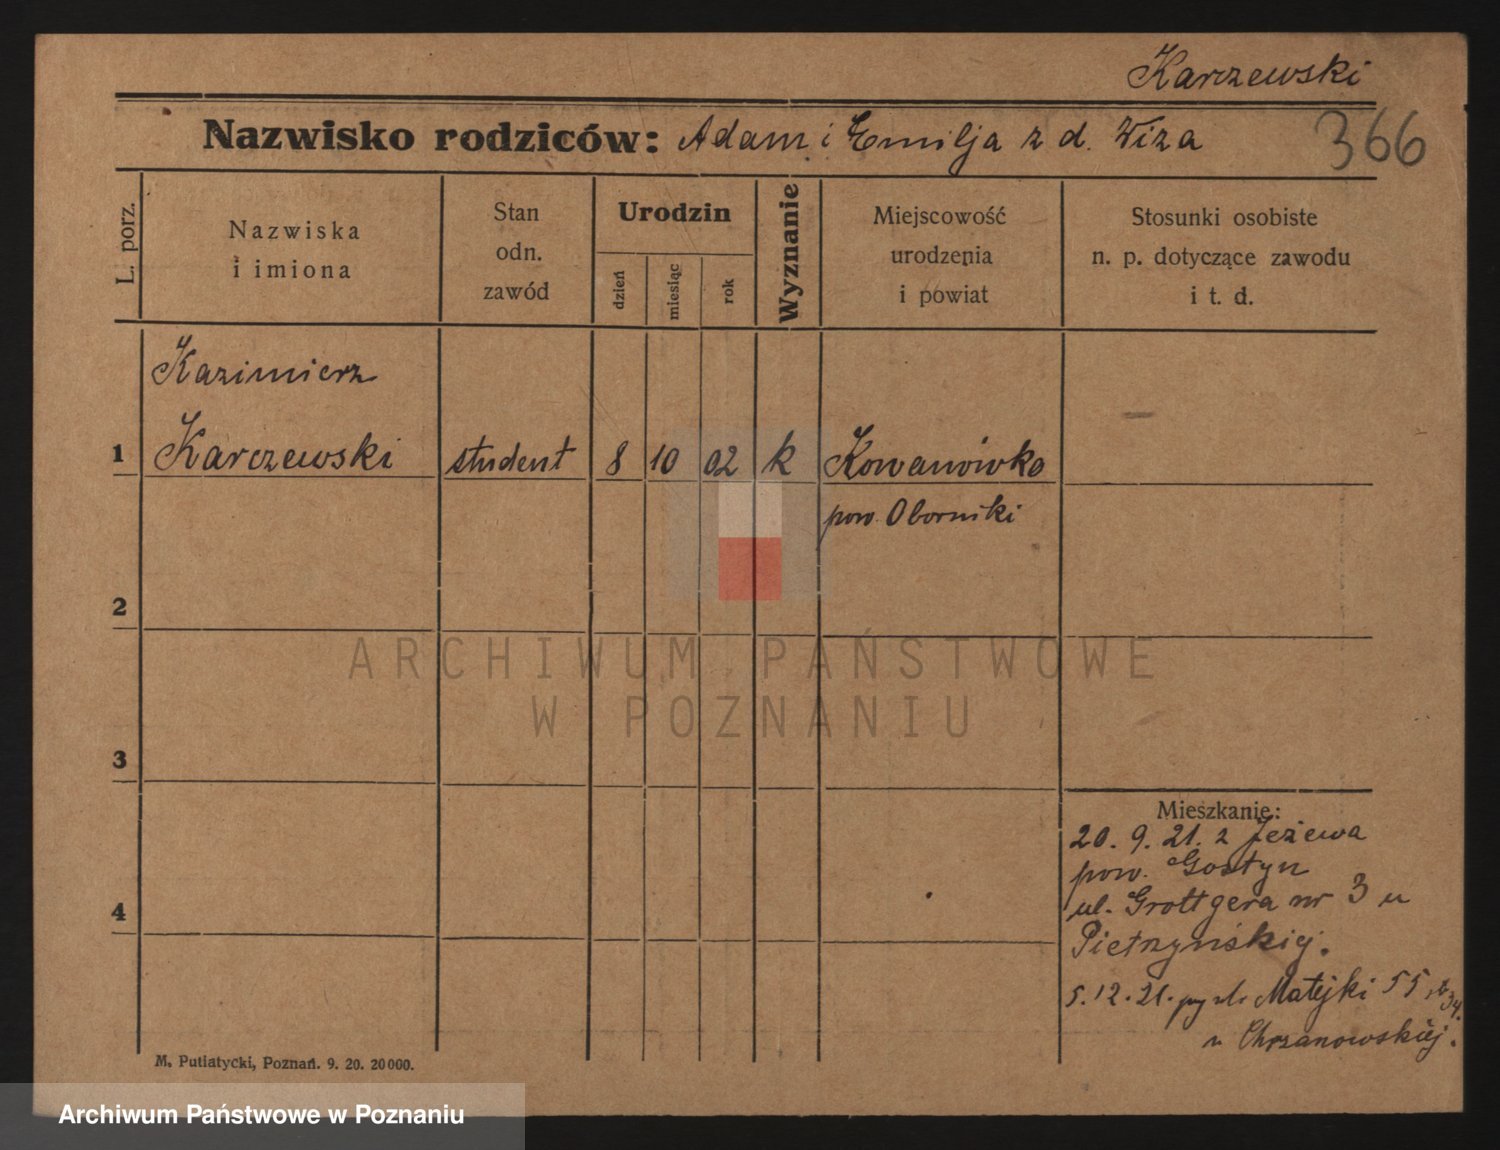 Karczewski
Nazwisko rodziców: Adam i Emilja z d. Wiza
366
L. porz.
Nazwiska
i imiona
Stan
odn.
zawód
Urodzin
dzień
miesiąc
rok
Wyznanie
Miejscowość
urodzenia
i powiat
Stosunki osobiste
n. p. dotyczące zawodu
i t. d.
Kazimierz
1 Karczewski student 8 10 02 k Kowanówko
pow. Oborniki
2
ARCHIWUM PAŃSTWOWE
W POZNANIU
3
Mieszkanie:
20. 9. 21. z Jeżewa
pow. Gostyn
ul. Grottgera nr 3 u
4
Pietrzyńskiej.
5. 12. 21. Matejki 55 34.
u Chrzanowskiej.
M. Putiatycki, Poznań. 9. 20. 20000.
Archiwum Państwowe w Poznaniu